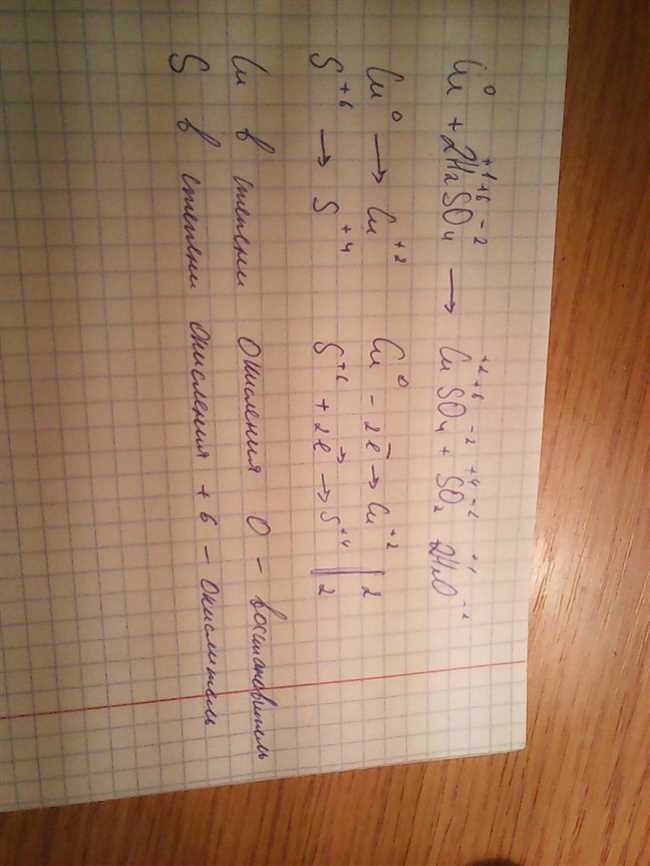 Cu⁰ + 2H₂⁺¹S⁺⁶O₄⁻² → Cu⁺²S⁺⁶O₄⁻² + S⁺⁴O₂⁻² 2H₂⁺¹O⁻²
Cu⁰ → Cu⁺² Cu⁰ - 2e̅ → Cu⁺² | 2
S⁺⁶ → S⁺⁴ S⁺⁶ + 2e → S⁺⁴ | 2
Cu в степени окисления 0 - восстановитель
S в степени окисления +6 - окислитель